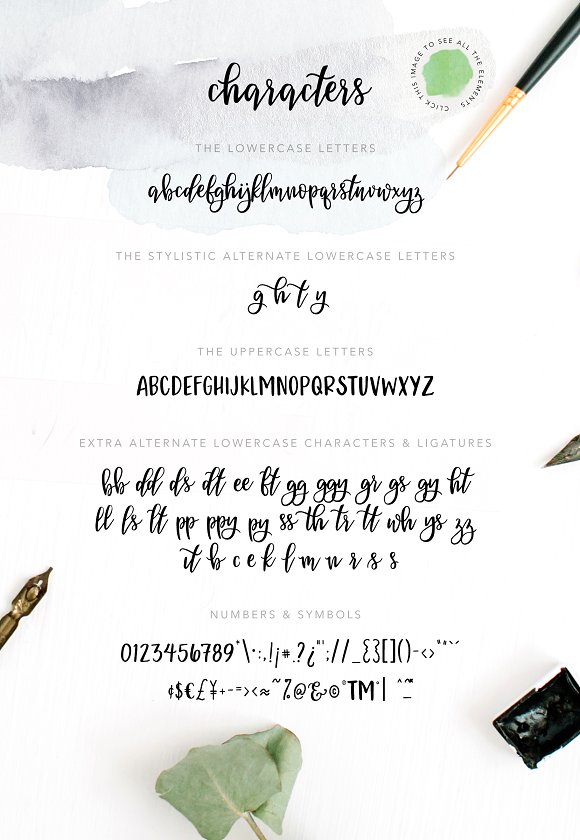 CLICK THIS IMAGE TO SEE ALL THE ELEMENTS
characters
THE LOWERCASE LETTERS
abcdefghijklmnopqrstuvwxyz
THE STYLISTIC ALTERNATE LOWERCASE LETTERS
g h t y
THE UPPERCASE LETTERS
ABCDEFGHIJKLMNOPQRSTUVWXYZ
EXTRA ALTERNATE LOWERCASE CHARACTERS & LIGATURES
bb dd ds dt ee ft gg ggy gr gs gy ht
ll ls lt pp ppy py ss th tr tt wh ys zz
it b c e k l m n r s s
NUMBERS & SYMBOLS
0123456789*\·:,!¡#.?¿"';//_{}[]()-<>"“”`´
¢$€£¥+-=><≈~%@&©°TM°| ^~_